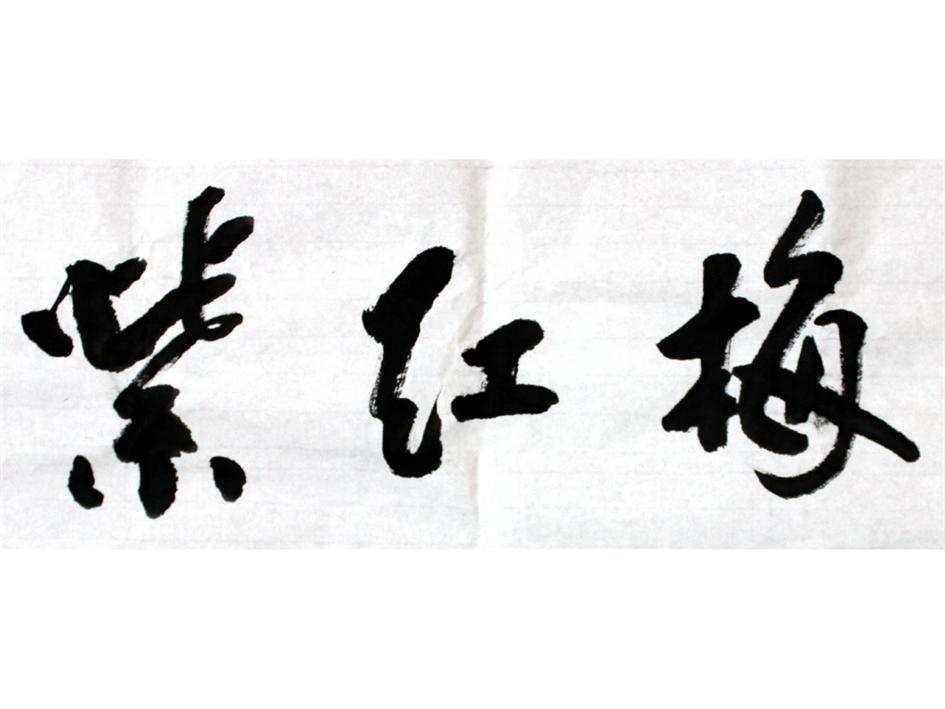 紫红梅